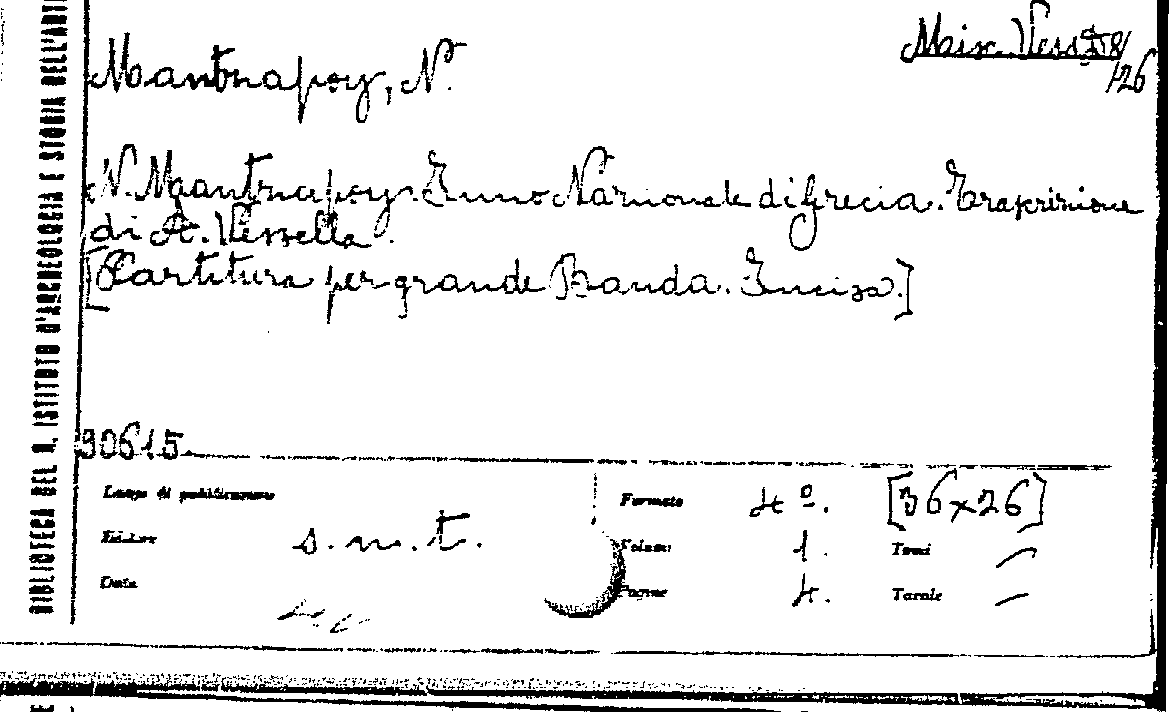 BIBLIOTECA DEL R. ISTITUTO D'ARCHEOLOGIA E STORIA DELL'ARTE
Misc. Vess. 58/
/26
Mantnapoy, N.
N. Mantnapoy. Inno Nazionale di Grecia. Trascrizione
di A. Vessella.
[Partitura per grande Banda. Incisa.]
90615.
Luogo di pubblicazione
Editore s.n.t.
Data
Formato 4º. [36x26]
Volumi 1. Tomi —
Pagine 4. Tavole —